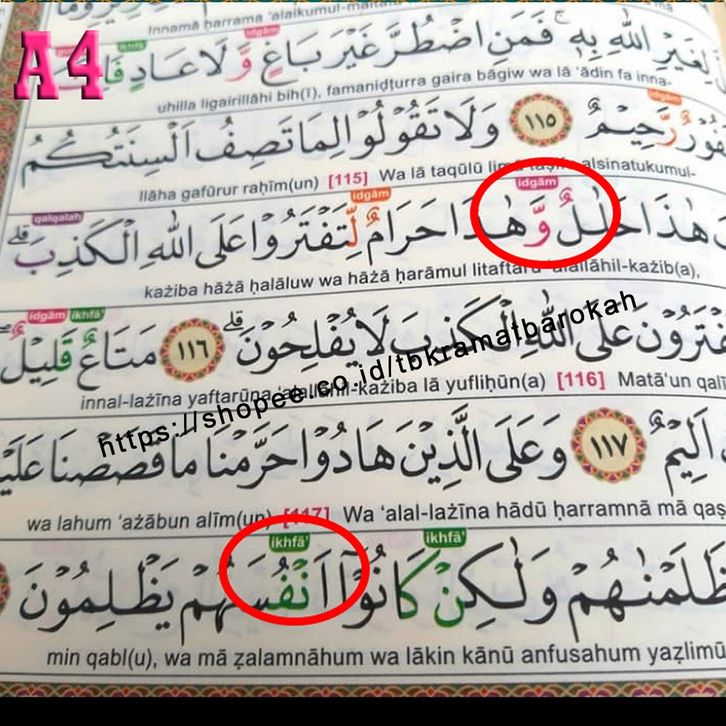 A4
Innamā ḥarrama ‘alaikumul-maitata
idgām
ikhfā’
لِغَيْرِ اللّٰهِ بِهٖۚ فَمَنِ اضْطُرَّ غَيْرَ بَاغٍ وَّلَا عَادٍ فَاِنَّ
uhilla ligairillāhi bih(ī), famaniḍṭurra gaira bāgiw wa lā ‘ādin fa inna-
idgām
غَفُوْرٌ رَّحِيْمٌ ١١٥ وَلَا تَقُوْلُوْا لِمَا تَصِفُ اَلْسِنَتُكُمُ
llāha gafūrur raḥīm(un) [115] Wa lā taqūlū limā taṣifu alsinatukumul-
idgām
idgām
qalqalah
هٰذَا حَلٰلٌ وَّهٰذَا حَرَامٌ لِّتَفْتَرُوْا عَلَى اللّٰهِ الْكَذِبَۗ
każiba hāżā ḥalāluw wa hāżā ḥarāmul litaftarū ‘alallāhil-każib(a),
idgām ikhfā’
يَفْتَرُوْنَ عَلَى اللّٰهِ الْكَذِبَ لَا يُفْلِحُوْنَۗ ١١٦ مَتَاعٌ قَلِيْلٌ
innal-lażīna yaftarūna ‘alallāhil-każiba lā yufliḥūn(a) [116] Matā‘un qalī
https://shopee.co.id/tbkramatbarokah
اَلِيْمٌ ١١٧ وَعَلَى الَّذِيْنَ هَادُوْا حَرَّمْنَا مَا قَصَصْنَا عَلَيْ
wa lahum ‘ażābun alīm(un) [117] Wa ‘alal-lażīna hādū ḥarramnā mā qaṣ
ikhfā’
ikhfā’
ظَلَمْنٰهُمْ وَلٰكِنْ كَانُوْٓا اَنْفُسَهُمْ يَظْلِمُوْنَ
min qabl(u), wa mā ẓalamnāhum wa lākin kānū anfusahum yaẓlimū